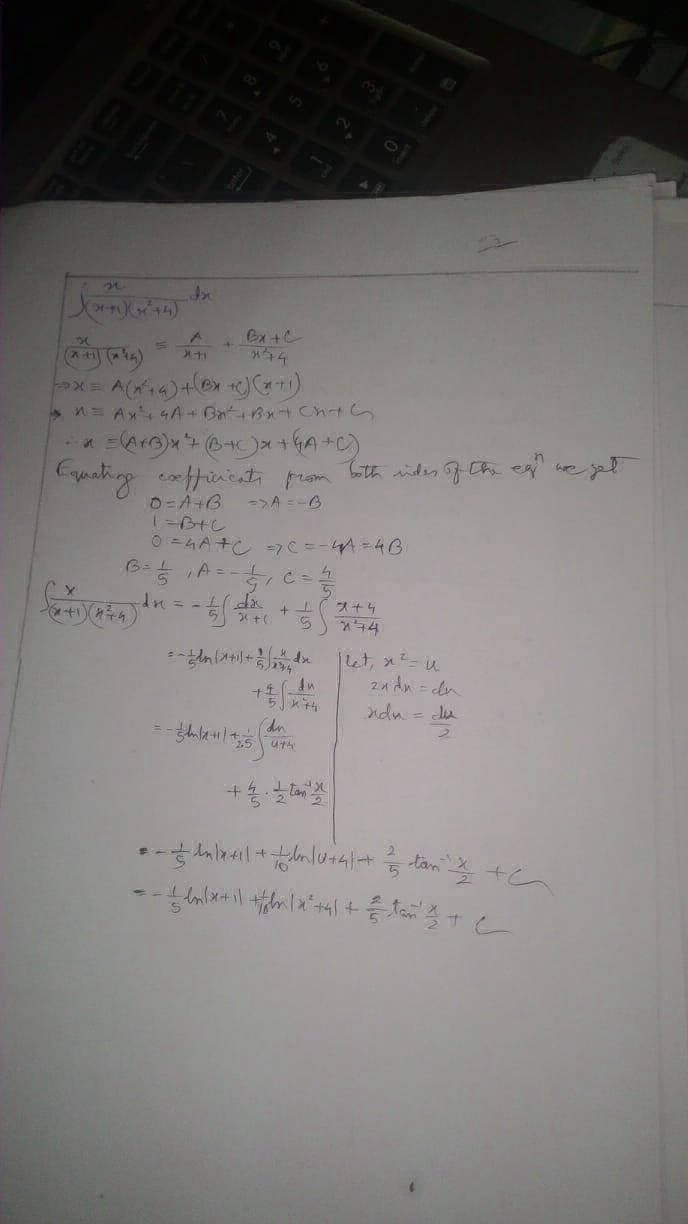 ∫ x/((x+1)(x²+4)) dx
x/((x+1)(x²+4)) ≡ A/(x+1) + (Bx+C)/(x²+4)
⇒ x ≡ A(x²+4)+(Bx+C)(x+1)
x ≡ Ax²+4A+Bx²+Bx+Cx+C
∴ x ≡ (A+B)x²+(B+C)x+(4A+C)
Equating coefficients from both sides of the eqⁿ we get
0=A+B ⇒A=-B
1=B+C
0=4A+C ⇒C=-4A=4B
B=1/5, A=-1/5, C=4/5
∫ x/((x+1)(x²+4)) dx = -1/5 ∫ dx/(x+1) + 1/5 ∫ (x+4)/(x²+4)
= -1/5 ln|x+1| + 1/5 ∫ x/(x²+4) dx
+ 4/5 ∫ dx/(x²+4)
= -1/5 ln|x+1| + 1/2.5 ∫ du/(u+4)
+ 4/5 · 1/2 tan⁻¹ x/2
Let, x² = u
2x dx = du
x dx = du/2
= -1/5 ln|x+1| + 1/10 ln|u+4| + 2/5 tan⁻¹ x/2 + C
= -1/5 ln|x+1| + 1/10 ln|x²+4| + 2/5 tan⁻¹ x/2 + C